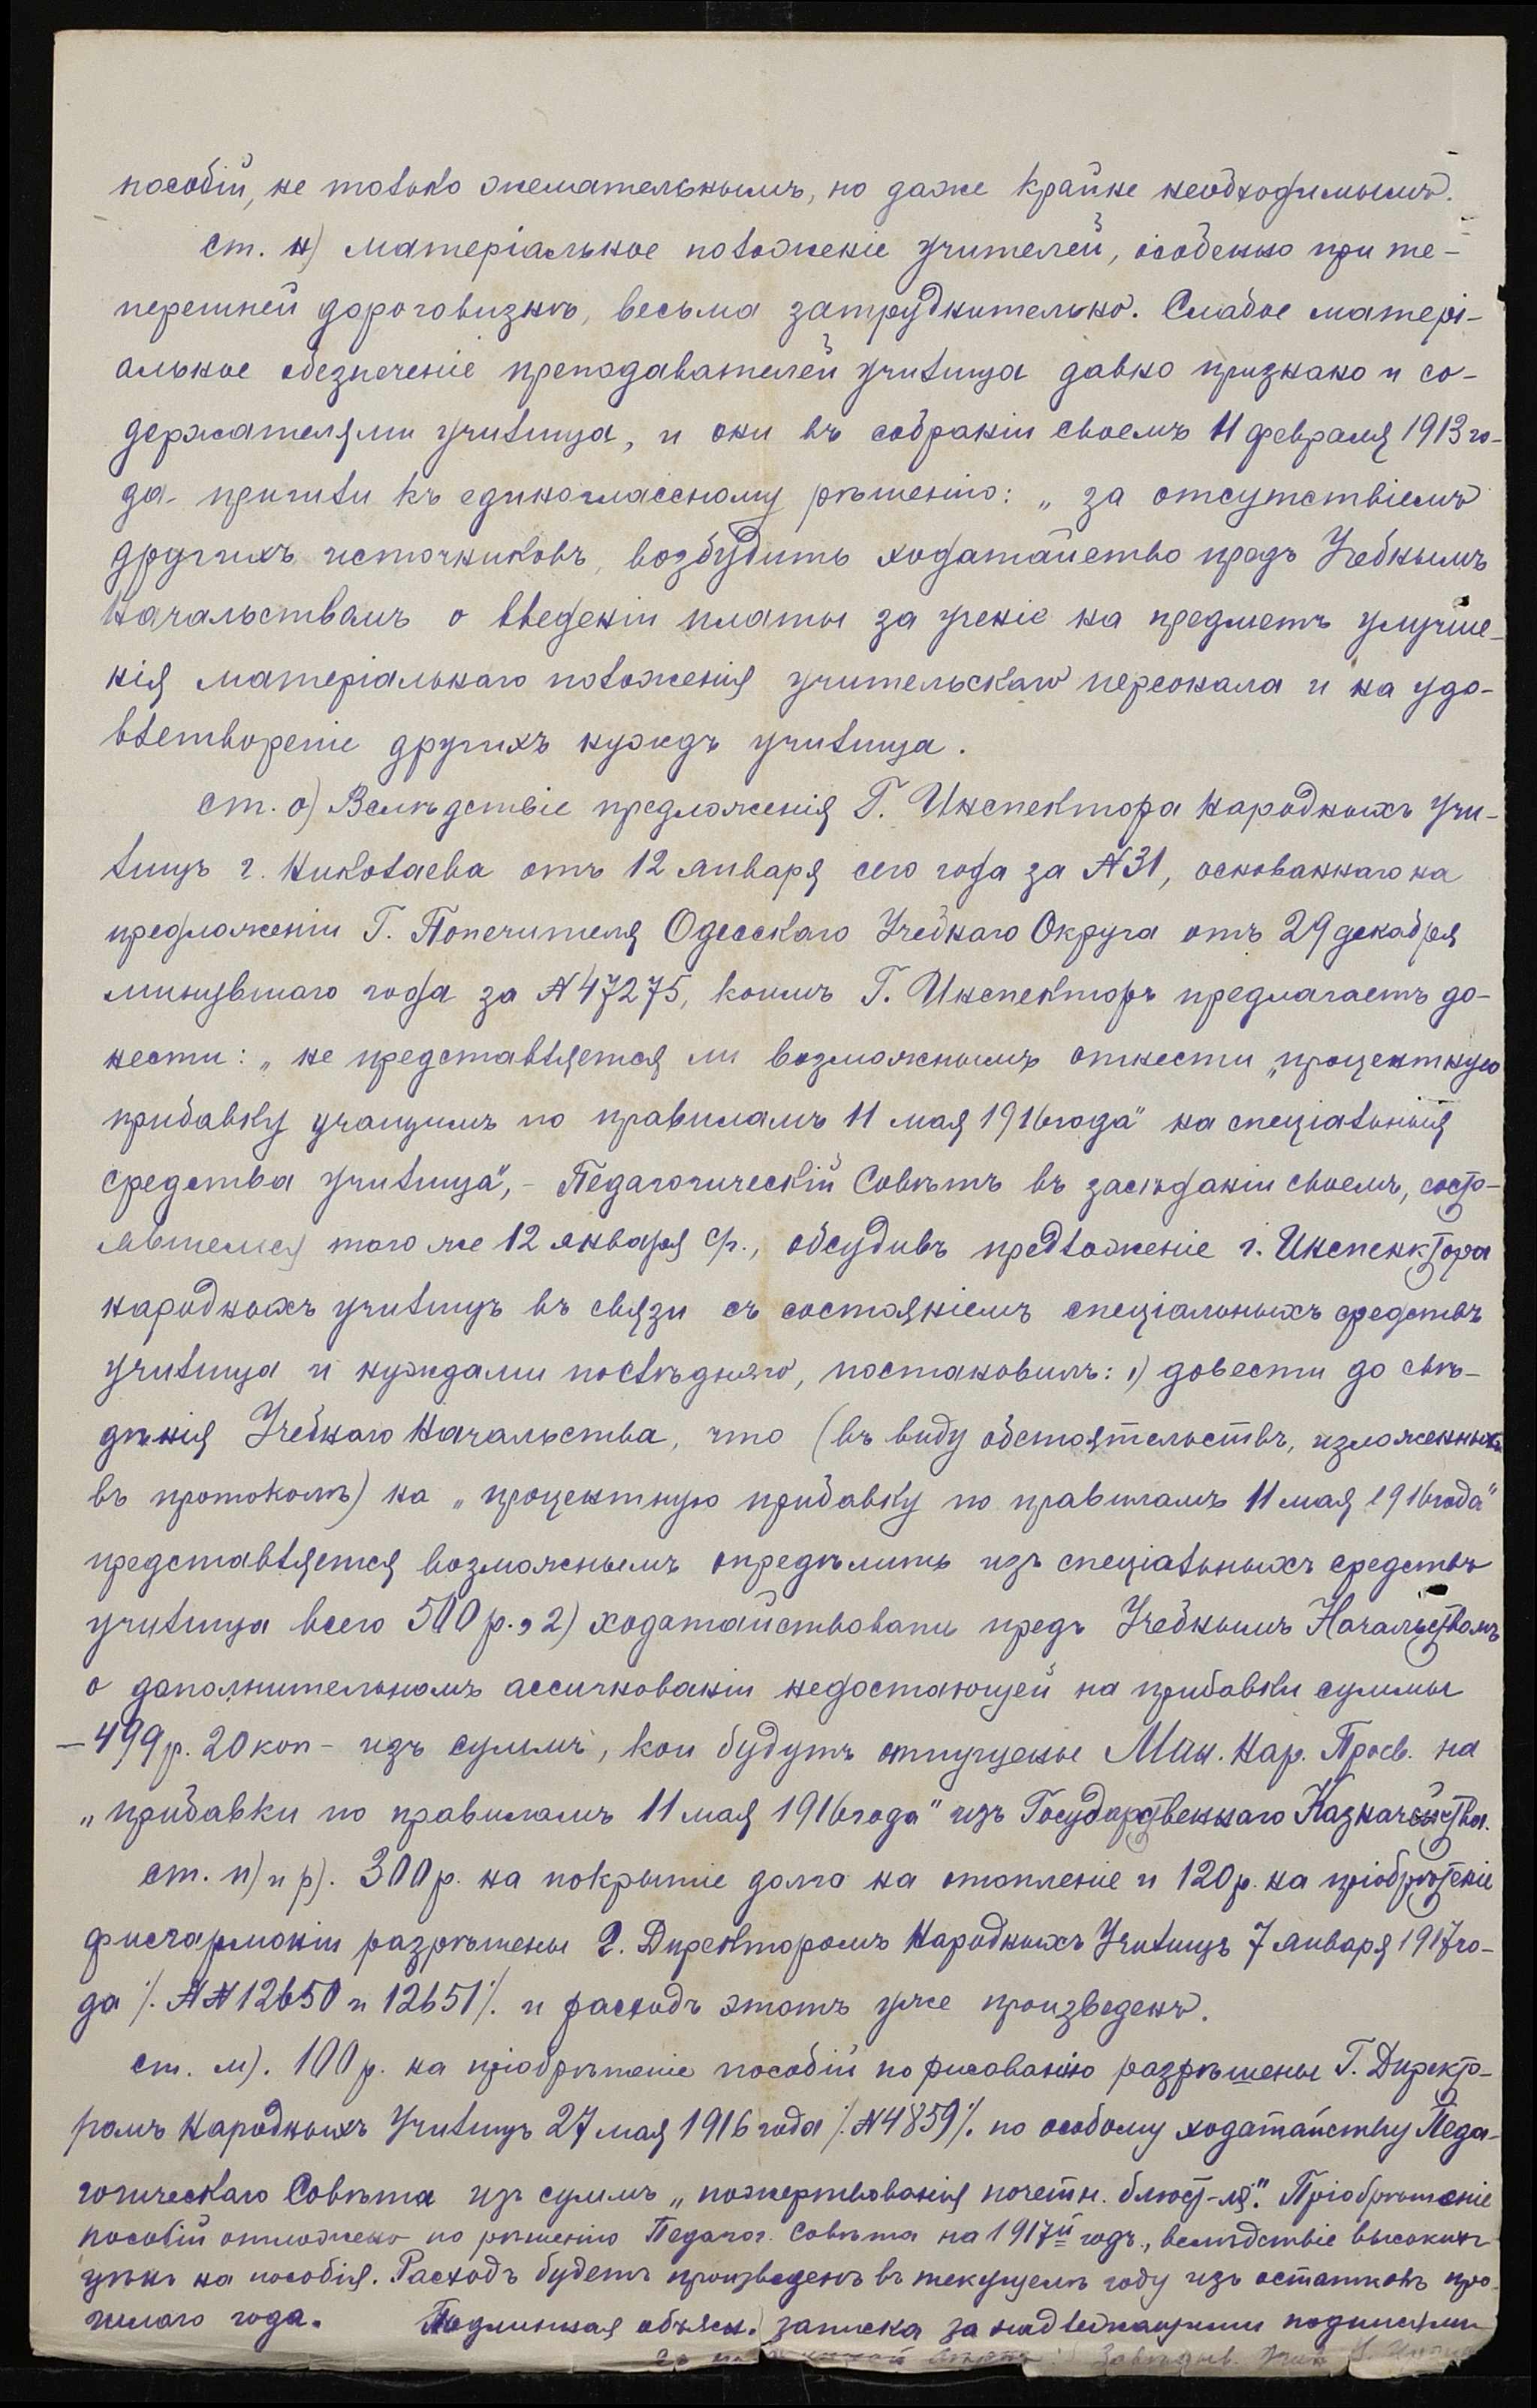 пособій, не только желательнымъ, но даже крайне необходимымъ.
ст. н) матеріальное положеніе учителей, особенно при те-
перешней дороговизнѣ, весьма затруднительно. Слабое матері-
альное обезпеченіе преподавателей училища давно признано и со-
держателями училища, и они въ собраніи своемъ 11 февраля 1913 го-
да пришли къ единогласному рѣшенію: „за отсутствіемъ
другихъ источниковъ, возбудить ходатайство предъ Учебнымъ
Начальствомъ о введеніи платы за ученіе на предметъ улучше-
нія матеріальнаго положенія учительскаго персонала и на удо-
влетвореніе другихъ нуждъ училища.
ст. о) Вслѣдствіе предложенія Г. Инспектора Народныхъ Учи-
лищъ г. Николаева отъ 12 января сего года за №31, основаннаго на
предложеніи Г. Попечителя Одесскаго Учебнаго Округа отъ 29 декабря
минувшаго года за №47275, коимъ Г. Инспекторъ предлагаетъ до-
нести: „не представляется ли возможнымъ отнести „процентную
прибавку учащимъ по правиламъ 11 мая 1916 года" на спеціальныя
средства училища", - Педагогическій Совѣтъ въ засѣданіи своемъ, состо-
явшемся того же 12 января с/г., обсудивъ предложеніе г. Инспенктора
народныхъ училищъ въ связи съ состояніемъ спеціальныхъ средствъ
училища и нуждами послѣдняго, постановилъ: 1) довести до свѣ-
дѣнія Учебнаго Начальства, что (въ виду обстоятельствъ, изложенныхъ
въ протоколѣ) на „процентную прибавку по правиламъ 11 мая 1916 года"
представляется возможнымъ опредѣлить изъ спеціальныхъ средствъ
училища всего 500 р. и 2) ходатайствовать предъ Учебнымъ Начальствомъ
о дополнительномъ ассигнованіи недостающей на прибавки суммы
— 499 р. 20 коп - изъ суммъ, кои будутъ отпущены Мин. Нар. Просв. на
„прибавки по правиламъ 11 мая 1916 года" изъ Государственнаго Казначейства.
ст. п) и р). 300 р. на покрытіе долга на отопленіе и 120 р. на пріобрѣтеніе
фисгармоніи разрѣшены Г. Директоромъ Народныхъ Училищъ 7 января 1917 го-
да /. №№ 12650 и 12651 /. и расходъ этотъ уже произведенъ.
ст. м). 100 р. на пріобрѣтеніе пособій по рисованію разрѣшены Г. Директо-
ромъ Народныхъ Училищъ 27 мая 1916 года /. №4859 /. по особому ходатайству Педа-
гогическаго Совѣта изъ суммъ „пожертвованія почетн. блюст-ля". Пріобрѣтеніе
пособій отложено по рѣшенію Педагог. Совѣта на 1917й годъ, вслѣдствіе высокихъ
цѣнъ на пособія. Расходъ будетъ произведенъ въ текущемъ году изъ остатковъ про-
шлаго года. Подлинная объясн. записка за надлежащими подписями
Завѣдыв.